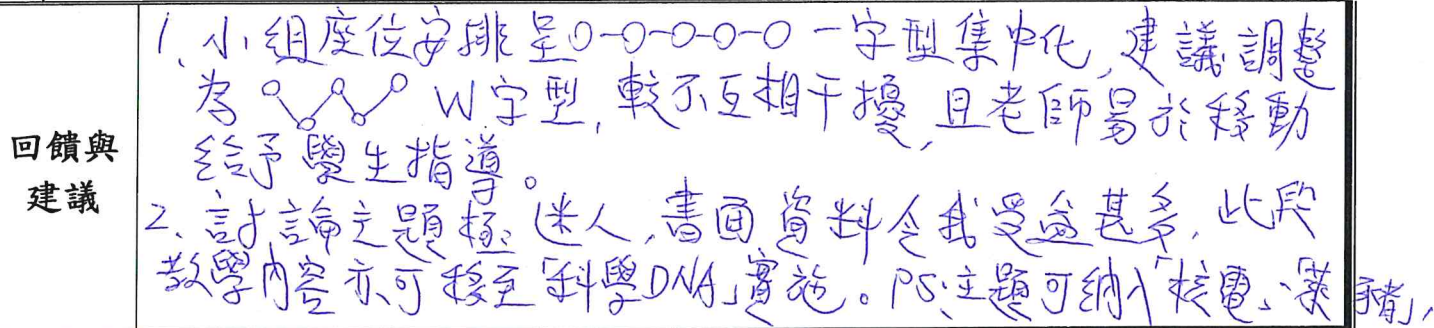 回饋與
建議
1. 小組座位安排呈O-O-O-O-O一字型集中化,建議調整
為 W字型,較不互相干擾,且老師易於移動
給予學生指導。
2. 討論主題極迷人,書面資料令我受益甚多,此段
教學內容亦可移至「科學DNA」實施。PS:主題可納入「核電」、「萊豬」,